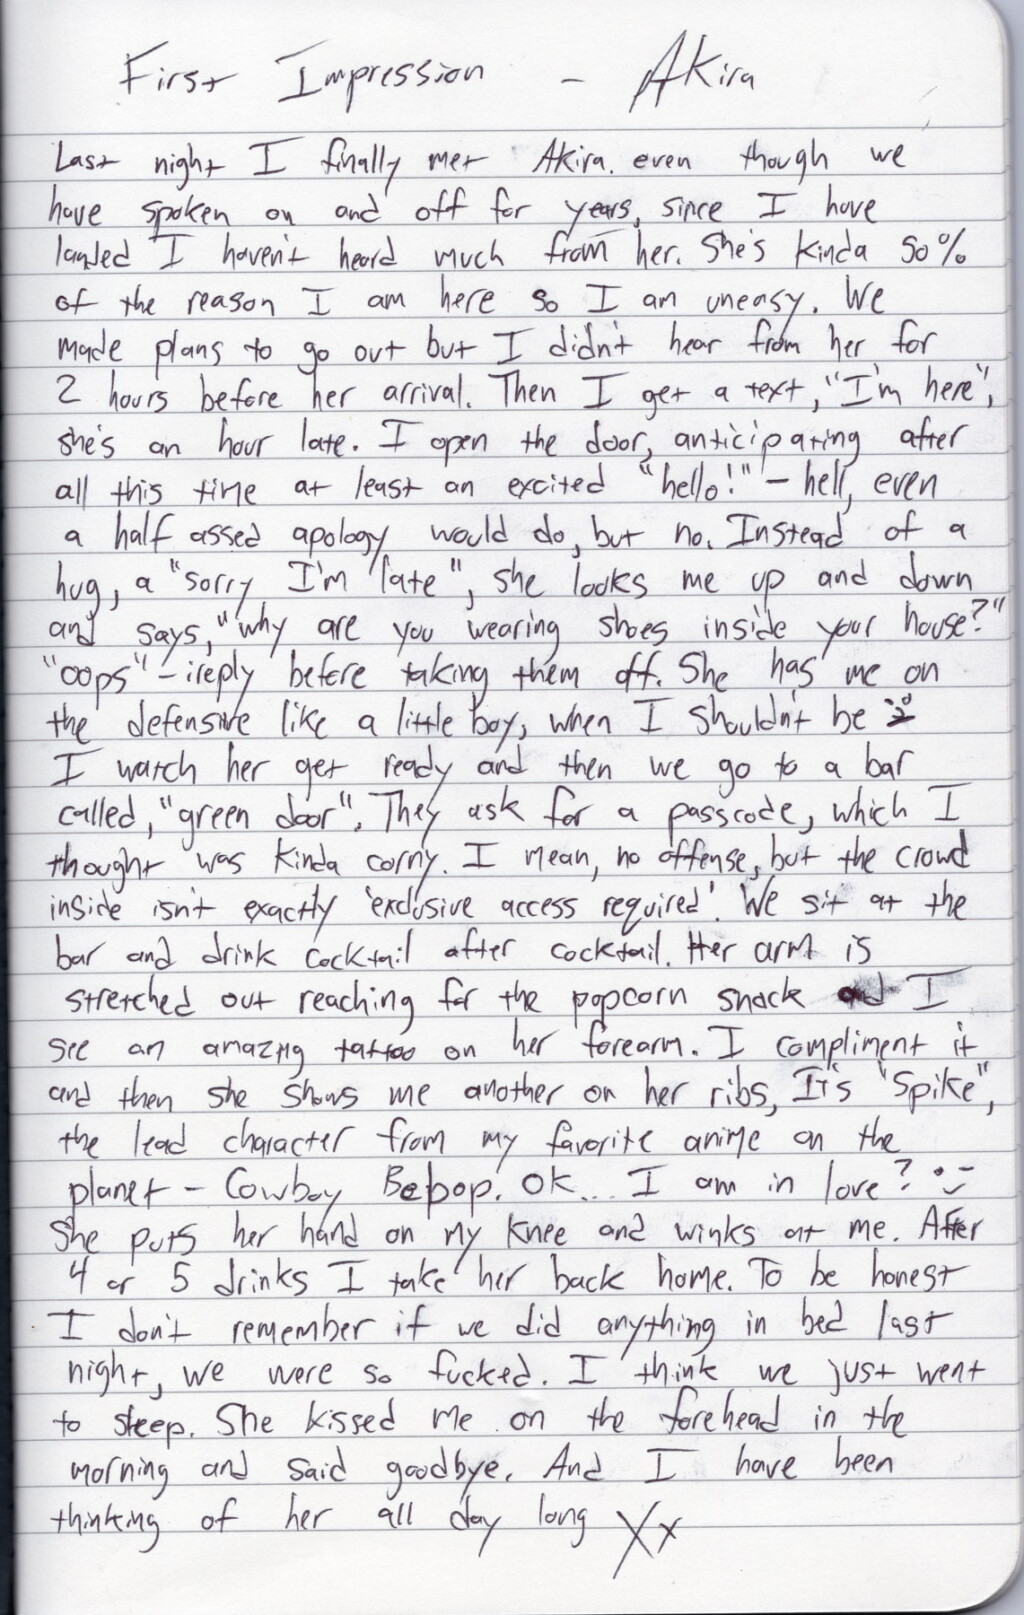 First Impression - Akira
Last night I finally met Akira. even though we
have spoken on and off for years, since I have
landed I haven't heard much from her. She's kinda 50%
of the reason I am here so I am uneasy. We
made plans to go out but I didn't hear from her for
2 hours before her arrival. Then I get a text, "I'm here",
she's an hour late. I open the door, anticipating after
all this time at least an excited "hello!" - hell, even
a half assed apology would do, but no. Instead of a
hug, a "sorry I'm late", she looks me up and down
and says, "why are you wearing shoes inside your house?"
"oops" - i reply before taking them off. She has me on
the defensive like a little boy, when I shouldn't be
I watch her get ready and then we go to a bar
called, "green door". They ask for a passcode, which I
thought was kinda corny. I mean, no offense, but the crowd
inside isn't exactly 'exclusive access required'. We sit at the
bar and drink cocktail after cocktail. Her arm is
stretched out reaching for the popcorn snack and I
see an amazing tattoo on her forearm. I compliment it
and then she shows me another on her ribs, It's "Spike",
the lead character from my favorite anime on the
planet - Cowboy Bebop. OK... I am in love?
She puts her hand on my knee and winks at me. After
4 or 5 drinks I take her back home. To be honest
I don't remember if we did anything in bed last
night, we were so fucked. I think we just went
to sleep. She kissed me on the forehead in the
morning and said goodbye. And I have been
thinking of her all day long Xx